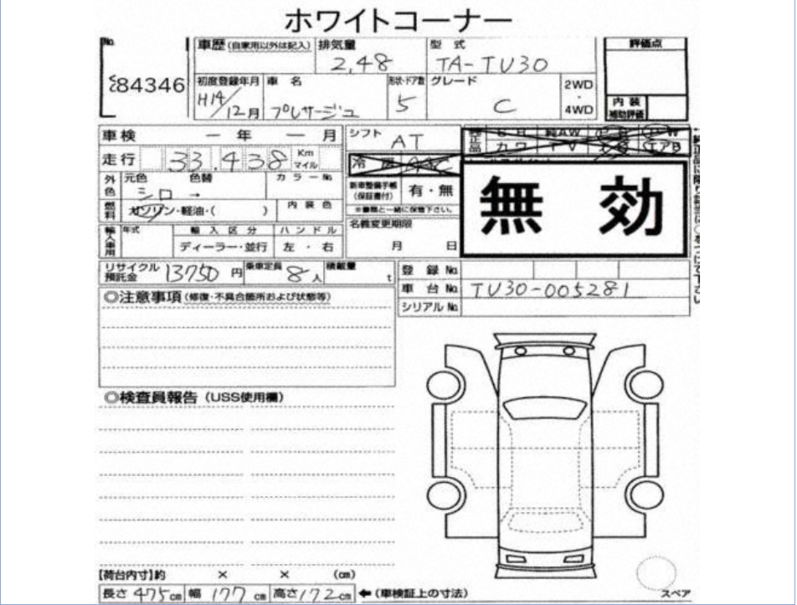 ホワイトコーナー
No.
84346
車歴(自家用以外は記入)
排気量
2,48
型式
TA-TU30
評価点
初度登録年月
H14/12月
車名
プレサージュ
形状・ドア数
5
グレード
C
2WD
・
4WD
内装
補助評価
車検 ー年 ー月
シフト
AT
走行 33,438 Km マイル
外色
元色
シロ
色替
→
カラーNo.
新車整備手帳
(保証書付)
有・無
※書類と一緒に保管下さい。
無効
燃料
ガソリン・軽油・( )
内装色
輸入車用
年式
輸入区分
ディーラー・並行
ハンドル
左・右
名義変更期限
月 日
リサイクル預託金 13750 円
乗車定員 8人
積載量 t
登録No.
車台No. TU30-005281
シリアルNo.
◎注意事項(修復・不具合箇所および状態等)
◎検査員報告(USS使用欄)
【荷台内寸】約 × × (cm)
長さ475cm 幅177cm 高さ172cm ←(車検証上の寸法)
スペア